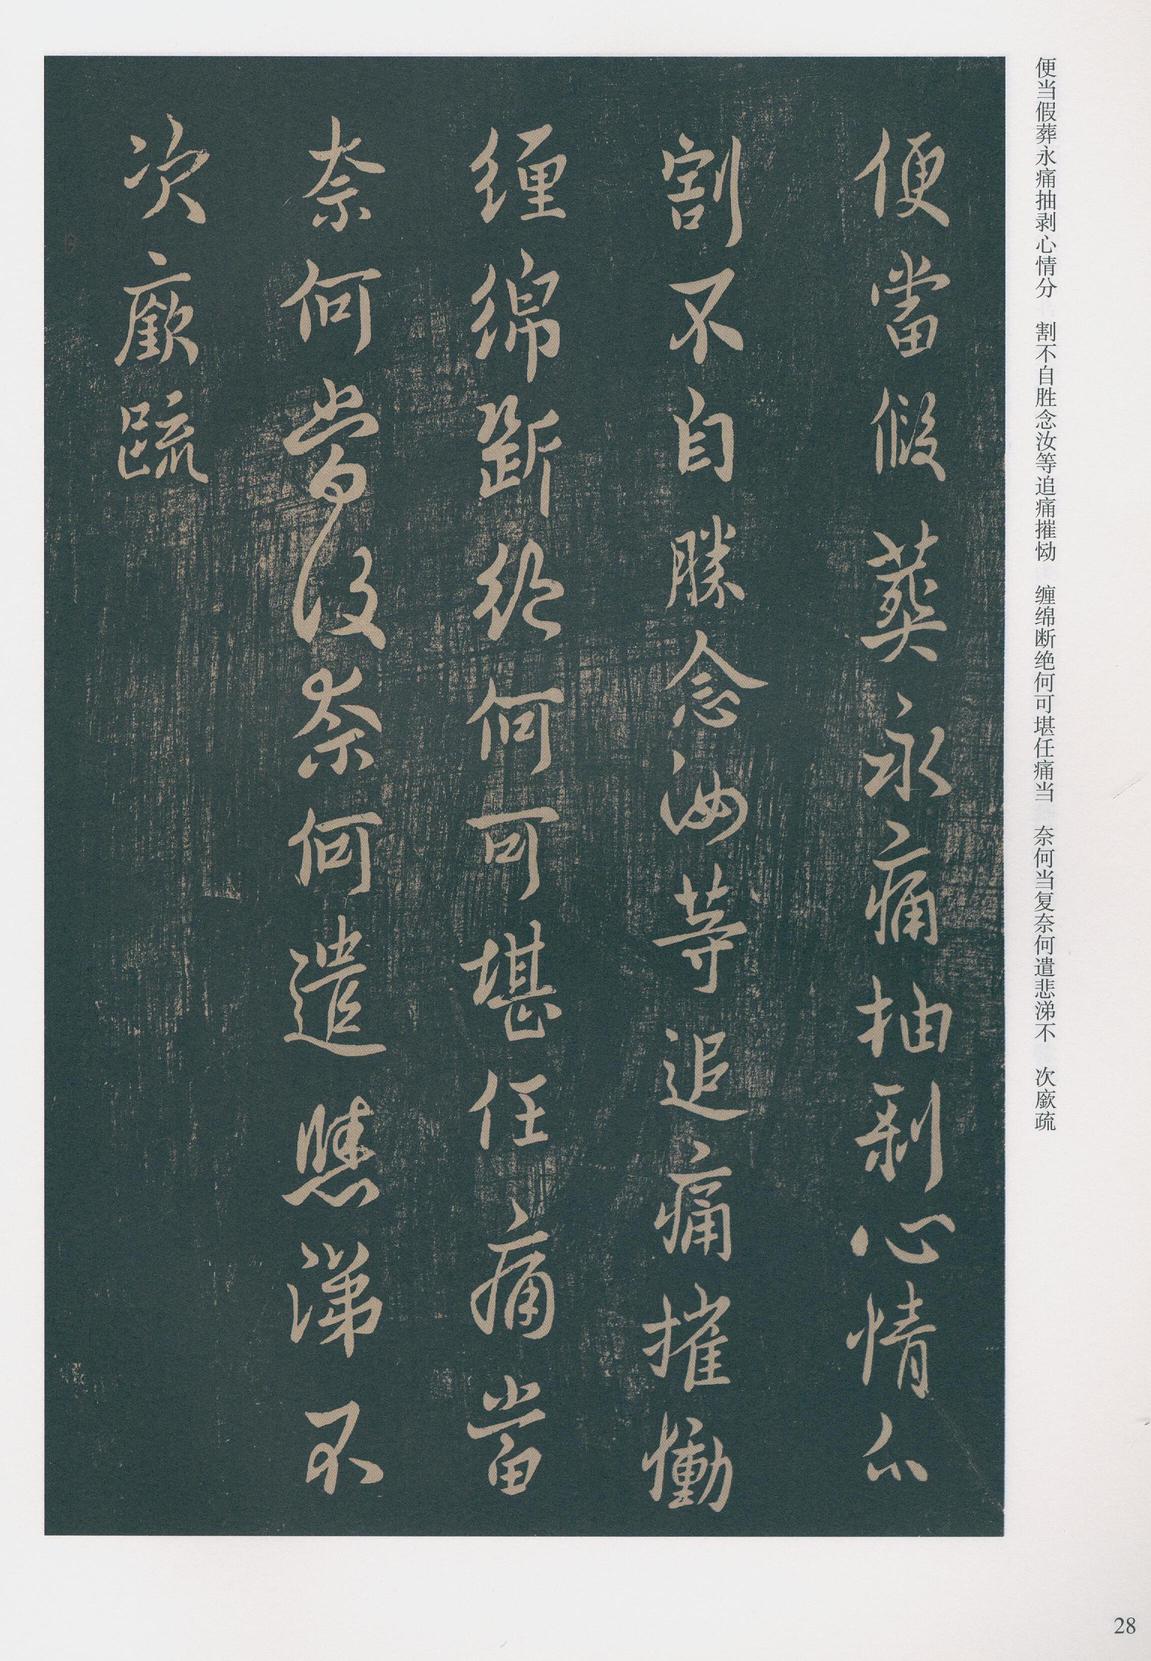 便當假葬永痛抽剥心情分
割不自勝念汝等追痛摧慟
纏綿斷絶何可堪任痛當
奈何當復奈何遣悲涕不
次厫疏
便当假葬永痛抽剥心情分　割不自胜念汝等追痛摧恸　缠绵断绝何可堪任痛当　奈何当复奈何遣悲涕不　次厫疏
28